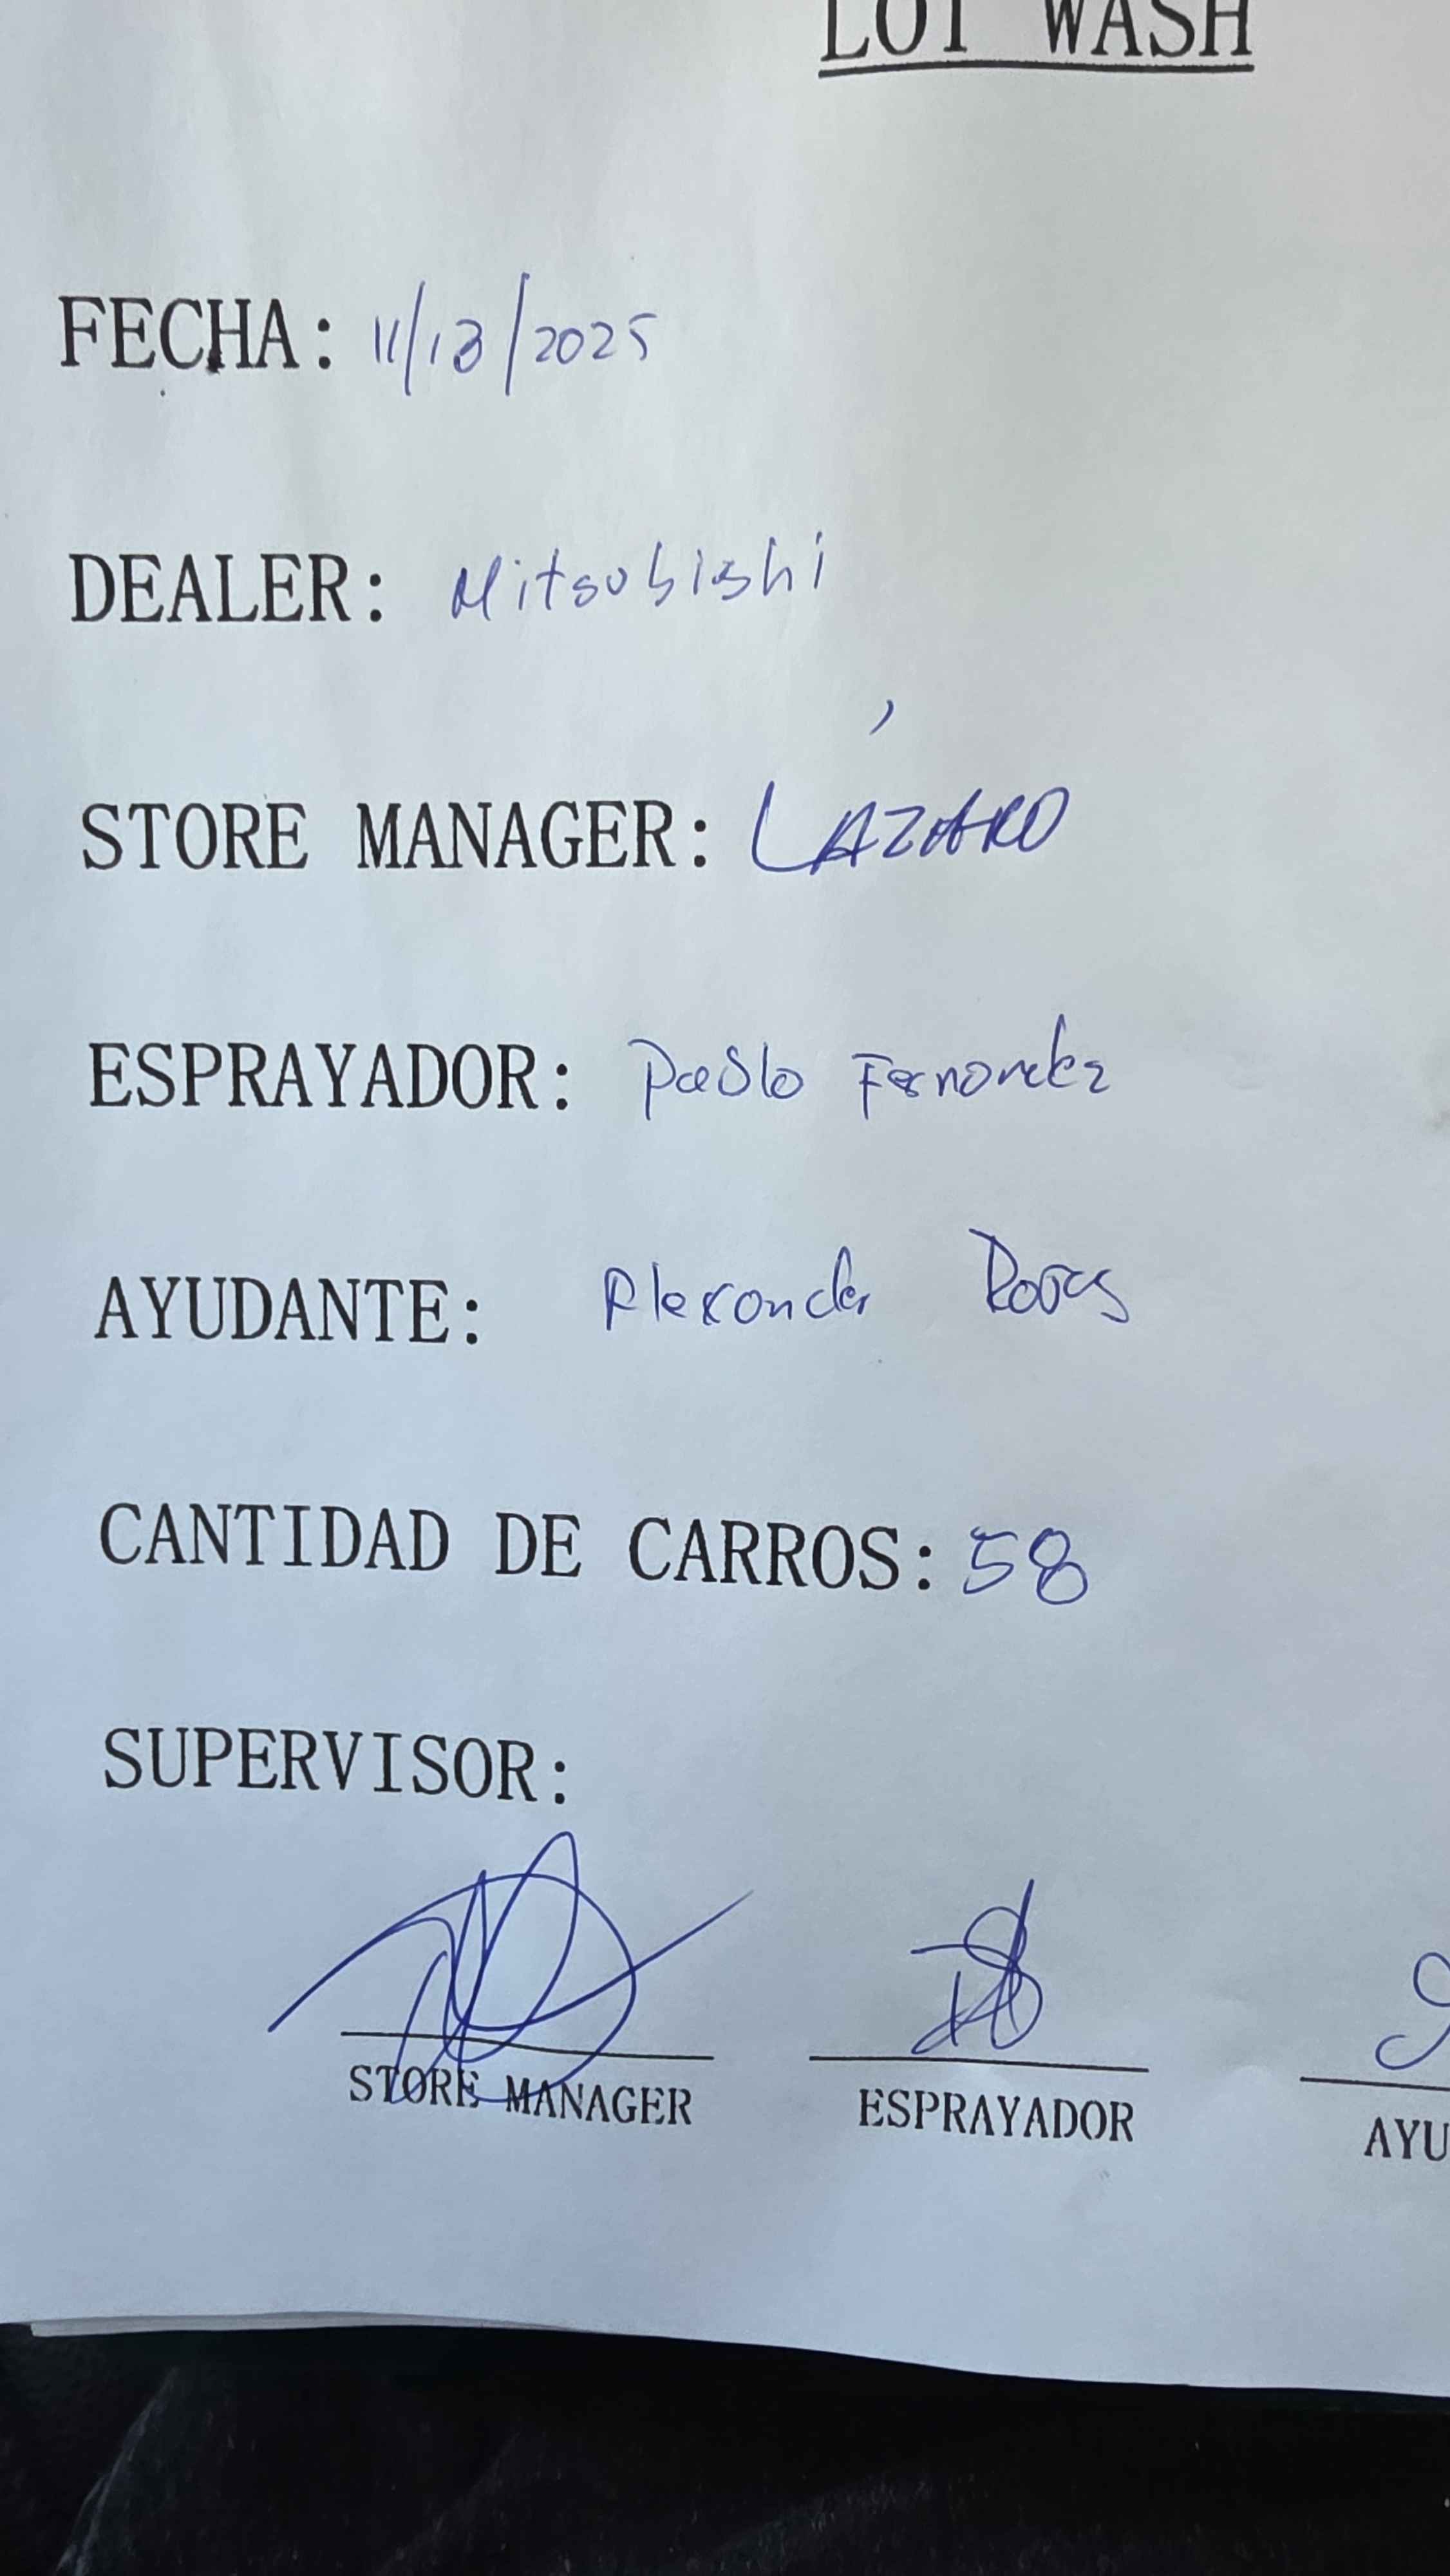 LOT WASH
FECHA: 11/13/2025
DEALER: Mitsubishi
STORE MANAGER: LAZARO
ESPRAYADOR: Pablo Fernandez
AYUDANTE: Alexander
CANTIDAD DE CARROS: 58
SUPERVISOR:
STORE MANAGER ESPRAYADOR AYU